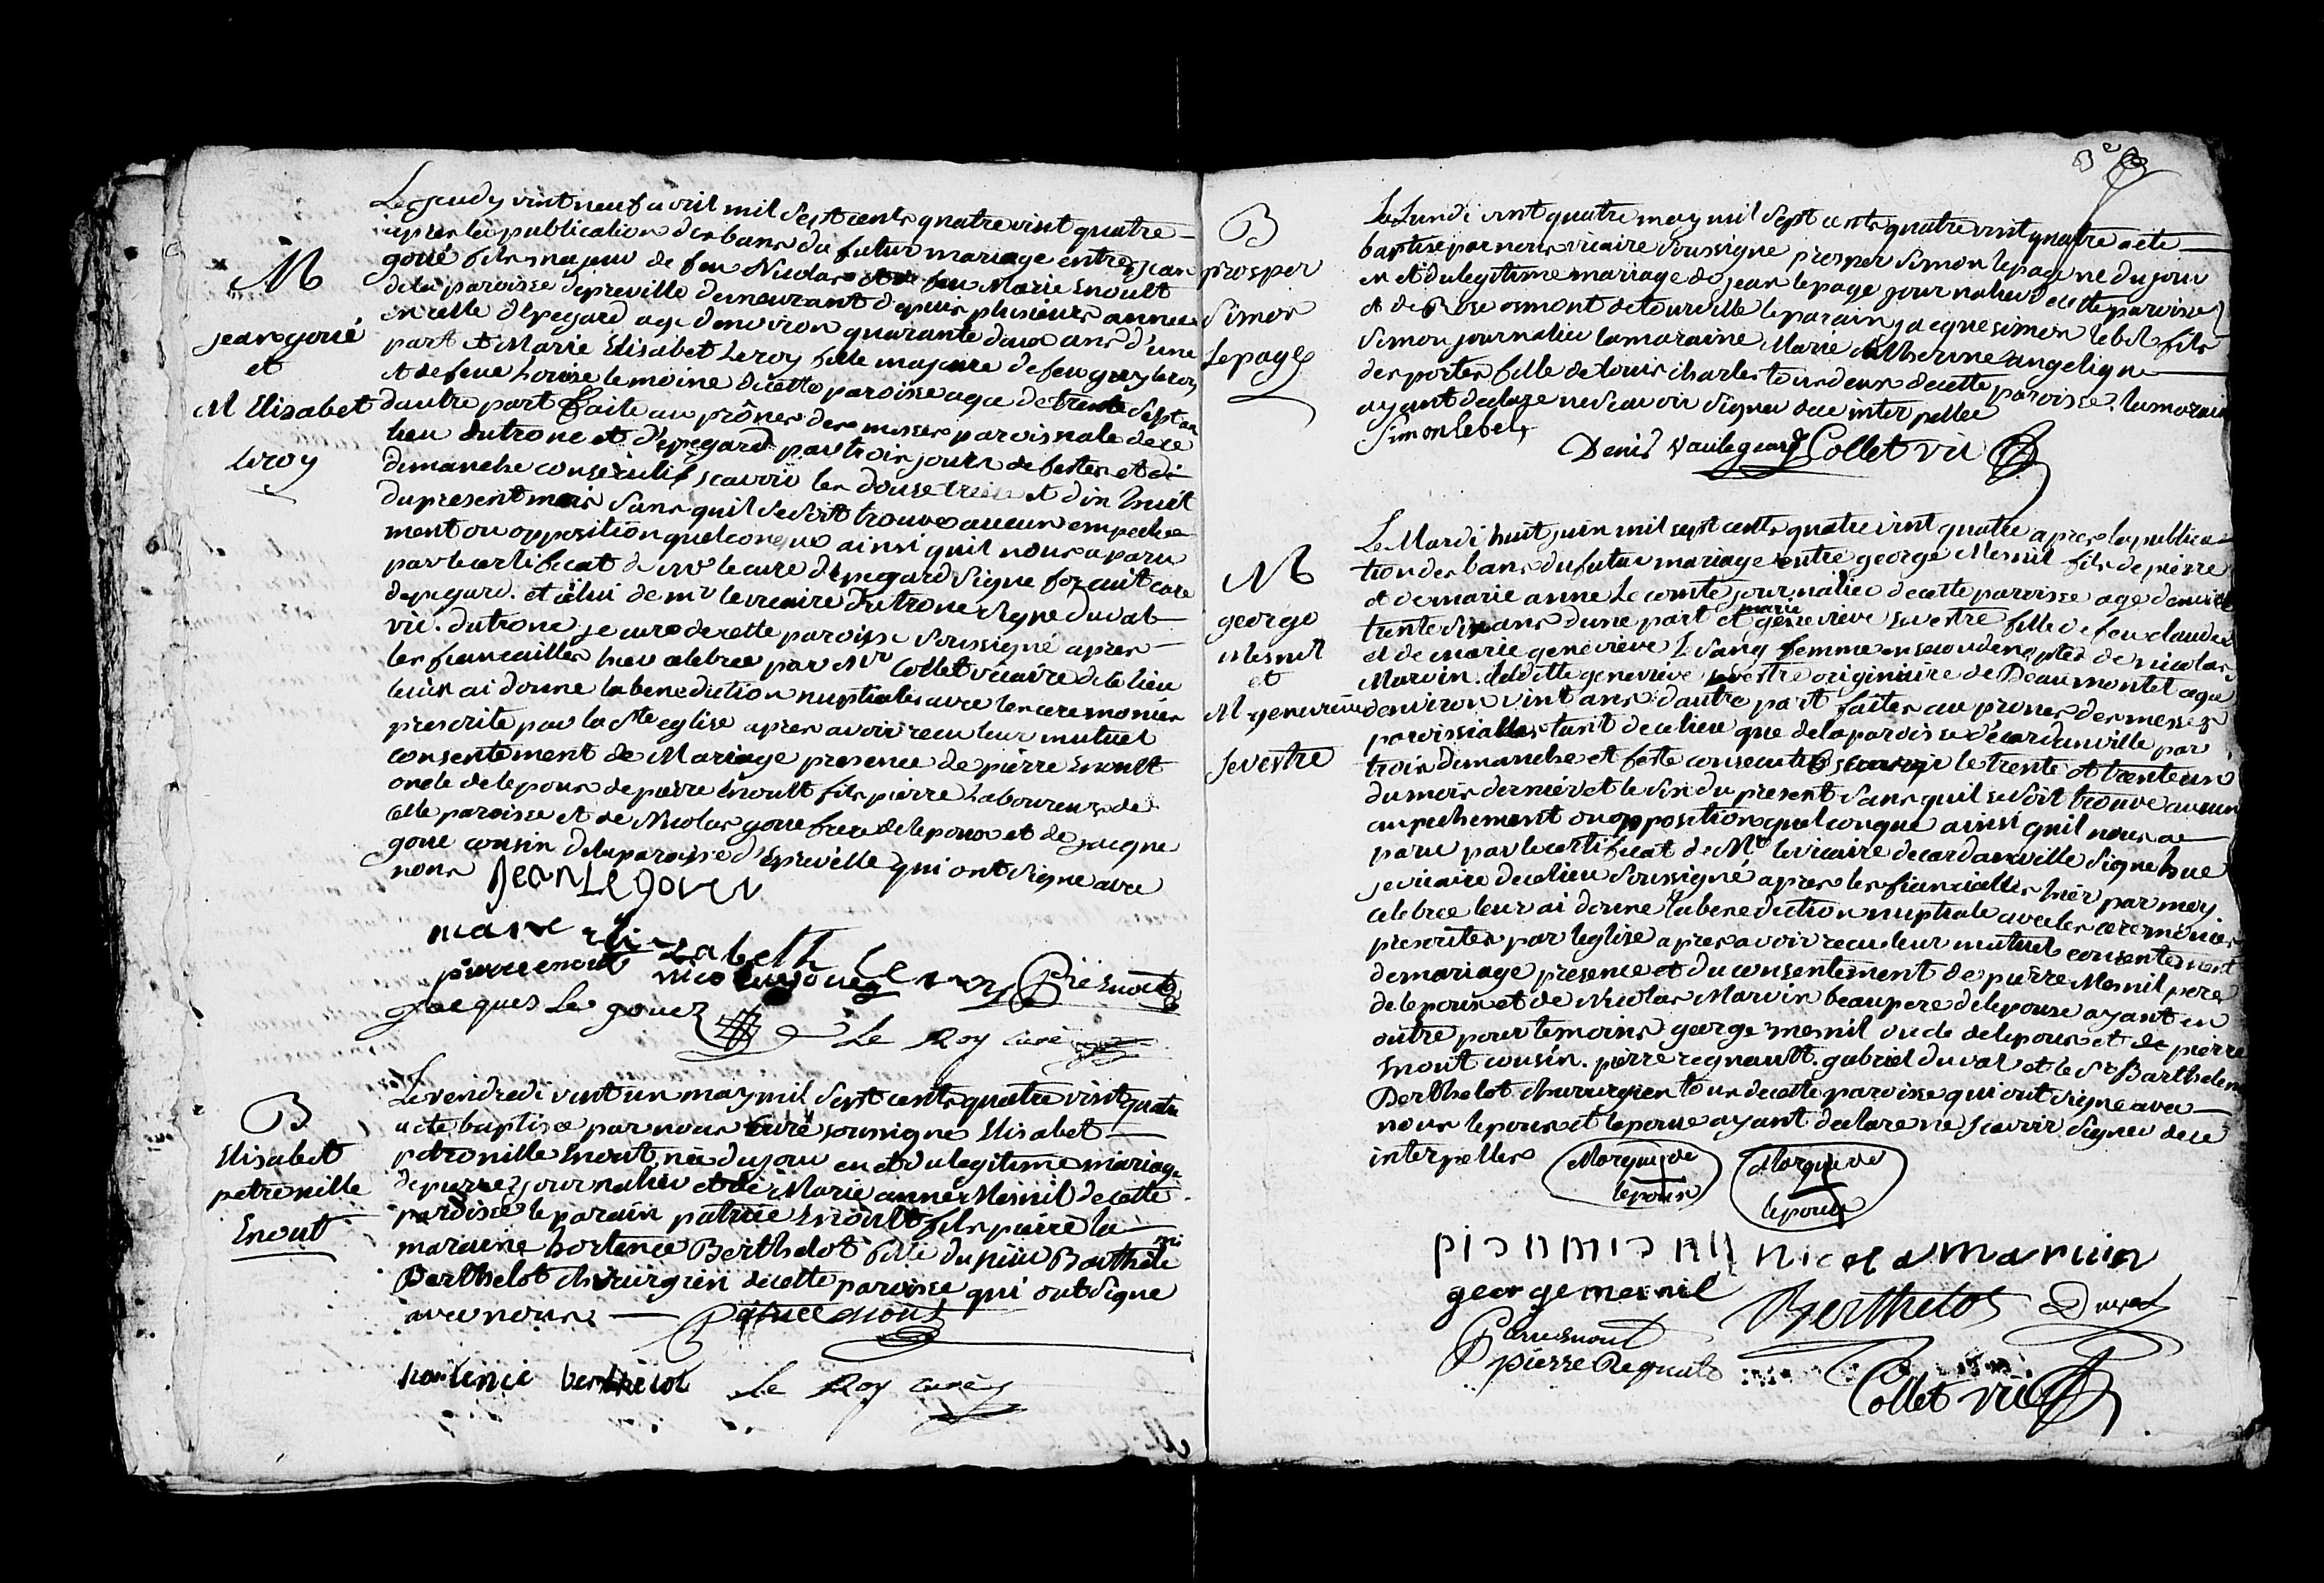 M
jean goüé
et
M Elisabet
Leroy
Le jeudy vint neuf avril mil sept cents quatre vint quatre
apres la publication des bans du futur mariage entre jean
goüé fils majeur de feu Nicolas et de feu Marie Enoult
de la paroisse depreville demeurant depuis plusieurs annees
en celle depegard age denviron quarante deux ans d'une
part et Marie Elisabet Leroy fille majeure de feu guy leroy
et de feue Louise lemoine de cette paroisse agee de trente sept an
dautre part faite au prônes des messes paroissiale de ce
lieu du trone et d'epegard par trois jours de festes et di
dimanche consecutifs scavoir les douse treise et dix huit
du present mois sans quil se soit trouve aucun empeche
ment ou opposition quelconque ainsi quil nous a paru
par le certificat de mr le cure depegard signe cure
depegard. et celui de mr le vicaire du trone signe duval
vic. du trone, je cure de cette paroisse soussigné apres
les fiancailles hier celebree par Mr Collet vicaire de ce lieu
leur ai donne la benediction nuptiale avec les ceremonies
prescrite par la ste eglise apres avoir recu leur mutuel
consentement de Mariage presence de pierre Enoult
oncle de lepoux de pierre Enoult fils pierre Laboureurs de
cette paroisse et de Nicolas goüe frere de lepoux et de jacque
goüe cousin de la paroisse d'Epreville qui ont signe avec
nous Jean Le gouez
marie elizabeth Leroy
pierre enout nicolas gouez P. Enout
Jacques Le gouez
Le Roy curé
B
Elisabet
petronille
Enout
Le vendredi vint un may mil sept cents quatre vint quatre
a ete baptisee par nous Curé soussigne Elisabet
petronille Enout, nee du jour en et du legitime mariage
de pierre journalier et de Marie anne Mesnil de cette
paroisse le parain patrice Enoult fils pierre la
maraine hortence Berthelot fille du sieur Barthele mi
Berthelot chirurgien de cette paroisse qui ont signe
avec nous Patrice enout
hortence berthelot Le Roy curé
3e
B
prosper
Simon
Lepage
Le Lundi vint quatre may mil sept cents quatre vint quatre a ete
baptise par nous vicaire soussigne prosper simon lepage ne du jour
en et du legitime mariage de jean lepage journalier de cette paroisse
et de Rose osmont de tourville le parain jacque simon lebel fils
simon journalier la maraine Marie Catherine angelique
desportes fille de louis charles tous deux de cette paroisse. la marain
ayant declare ne scavoir signer de ce interpellee
Simon Lebel
Denis Vauleguard Collet vic
M
george
Mesnil
et
M genevieve
Sevestre
Le Mardi huit juin mil sept cents quatre vint quatre apres la publica
tion des bans du futur mariage entre george Mesnil fils de pierre
et de marie anne Le comte journalier de cette paroisse age denviron
trente six ans dune part et marie genevieve sevestre fille de feu claude
et de marie genevieve Le Sang femme en secondes noples de nicolas
Marvin. ladditte genevieve sevestre originaire de Beaumontel agee
denviron vint ans dautre part faites au prones des messes
paroissialles tant de ce lieu que de la paroisse décardanville par
trois dimanche et feste consecutifs scavoir le trente et trente un
du mois dernier et le six du present sans quil se soit trouve aucun
empechement ou opposition quelconque ainsi quil nous a
paru par le certificat de Mr le vicaire decardanville signe hue
je vicaire de ce lieu soussigné apres les fiancialles hier par moy
celebree leur ai donne la benediction nuptiale avec les ceremonies
prescrites par leglise apres avoir recu leur mutuel consentement
de mariage presence et du consentement de pierre Mesnil pere
de lepoux et de Nicolas Marvin beaupere de lepouse ayant en
outre pour temoins george mesnil oncle de lepoux et de pierre
Enout cousin. pierre regnault. gabriel duval et le sr Barthelemi
Berthelot chirurgien tous de cette paroisse qui ont signe avec
nous lepoux et lepouse ayant declare ne scavoir signer de ce
interpelles Marque de lepoux Marque de lepouse
george mesnil nicola marvin
Berthelot Duval
Pierre enout
pierre Regnult
Collet vic